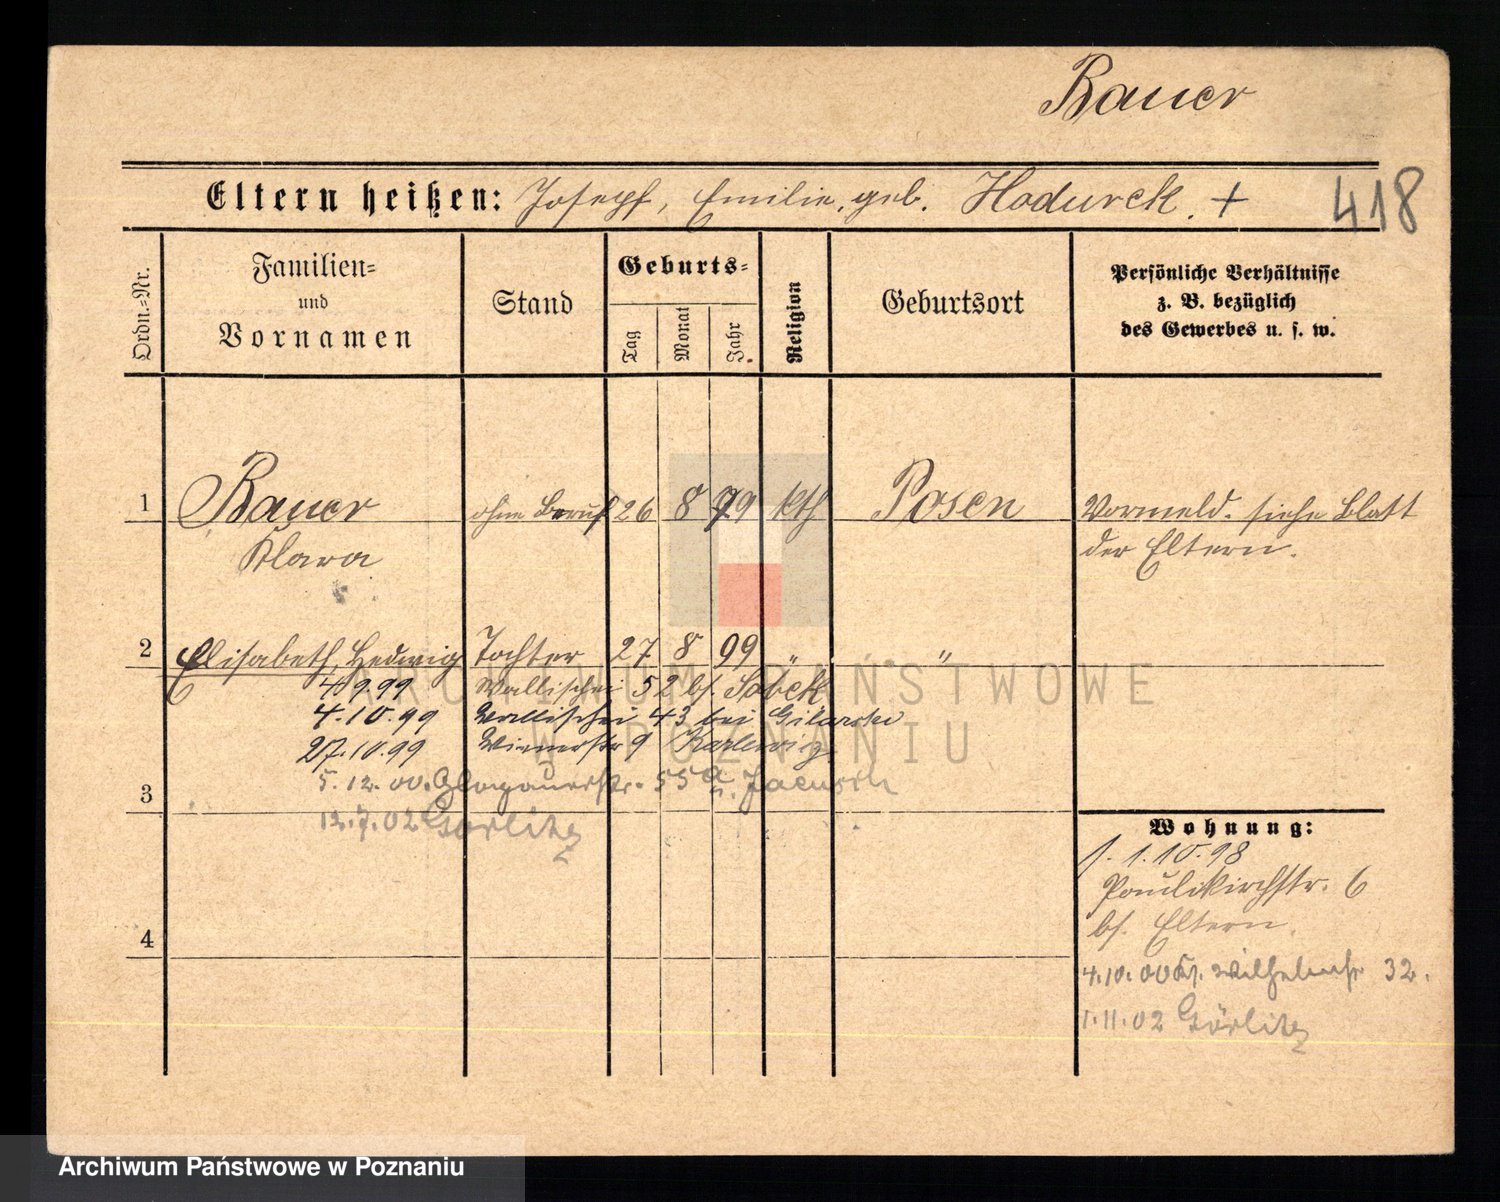 Bauer
Eltern heißen: Joseph, Emilie, geb. Hodurek. +
418
Ordn.=Nr.
Familien=
und
Vornamen
Stand
Geburts=
Tag
Monat
Jahr.
Religion
Geburtsort
Persönliche Verhältnisse
z. B. bezüglich
des Gewerbes u. s. w.
1 Bauer ohne Beruf 26 8 79 kth Posen Vormeld. siehe Blatt
Klara der Eltern.
2 Elisabeth, Hedwig Tochter 27. 8 99 " "
4.9.99 Wallischei 52 bs. Sobek
4.10.99 Wallischei 43 bei Gilarski
27.10.99 Wienerstr 9
5.12.00. Glogauerstr. 55a
3
12.7.02 Görlitz
Wohnung:
f. 1.10.98
Paulikirchstr. 6
bs. Eltern.
4
4.10.00 Wilhelmstr 32.
1.11.02 Görlitz
ARCHIWUM PAŃSTWOWE
W POZNANIU
Archiwum Państwowe w Poznaniu